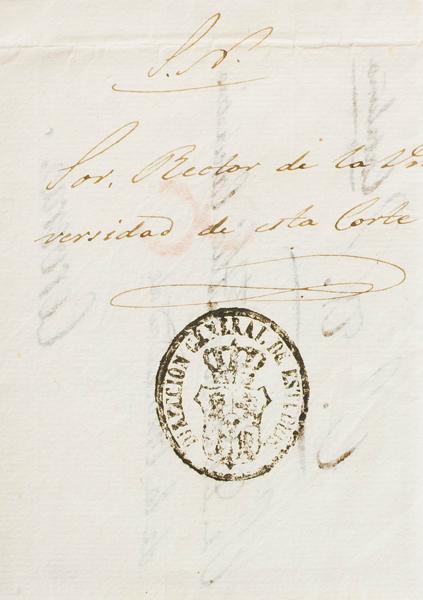 S. N.
Sor. Rector de la Uni
versidad de esta Corte
DIRECCION GENERAL DE ESTUDIOS